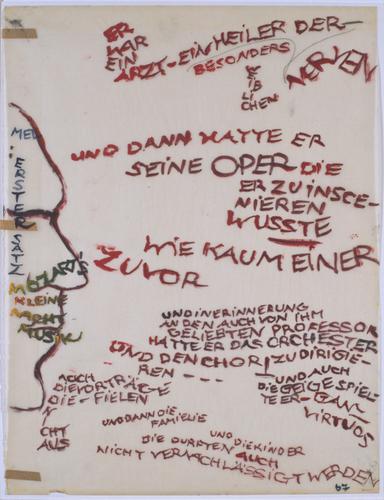 ER
WAR
EIN
ARZT-EIN HEILER DER-
BESONDERS
WEIB
LI
CHEN
NERVEN
UND DANN HATTE ER
SEINE OPER DIE
ER ZU INSCE-
NIEREN
WUSSTE
WIE KAUM EINER
ZUVOR
MEL
ERSTER SATZ
MOZARTS
KLEINE
NACHT
MUSIK
UND IN ERINNERUNG
AN DEN AUCH VON IHM
GELIEBTEN PROFESSOR
HATTE ER DAS ORCHESTER
UND DEN CHOR ZU DIRIGIE-
REN ---
UND AUCH
DIE GEIGE SPIEL-
TE ER-GANZ-
VIRTUOS
NOCH
DIE VORTRÄGE
DIE-FIELEN
NICHT
AUS
UND DANN DIE
FAMIELIE
UND DIE KINDER
DIE DURFTEN AUCH
NICHT VERNACHLÄSSIGT WERDEN